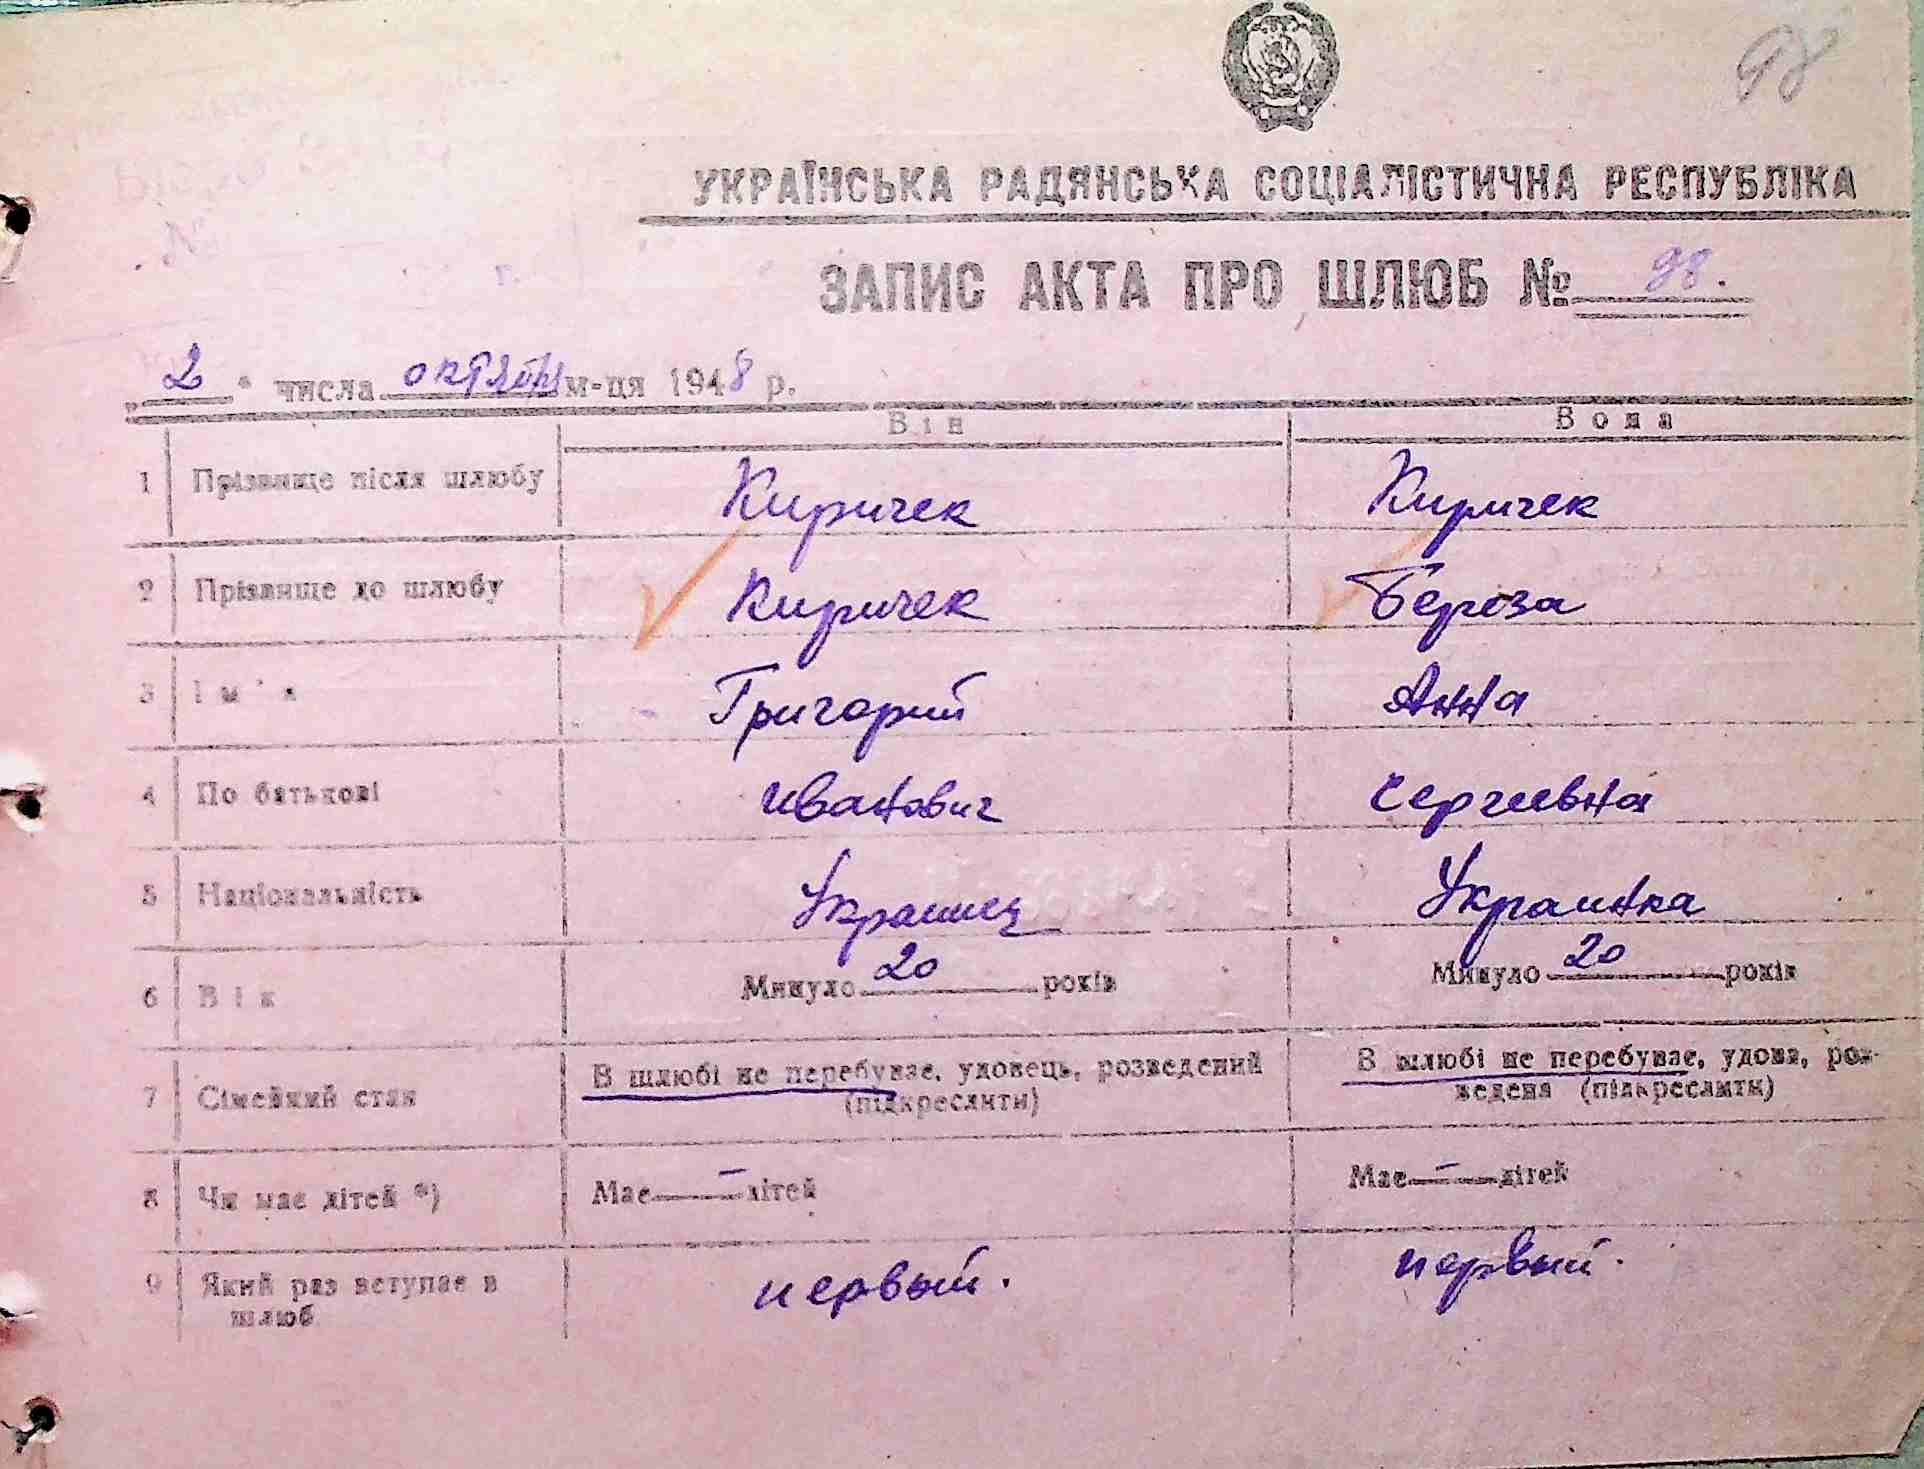 98
УКРАЇНСЬКА РАДЯНСЬКА СОЦІАЛІСТИЧНА РЕСПУБЛІКА
ЗАПИС АКТА ПРО ШЛЮБ № 98.
„2" числа октября м-ця 1948 р.
Він Вона
1 Прізвище після шлюбу Киричек Киричек
2 Прізвище до шлюбу Киричек Береза
3 Ім'я Григорий Анна
4 По батькові Иванович Сергеевна
5 Національність Украинец Украинка
6 Вік Минуло 20 років Минуло 20 років
7 Сімейний стан В шлюбі не перебуває, удовець, розведений (підкреслити) В шлюбі не перебуває, удова, роз-
ведена (підкреслити)
8 Чи має дітей *) Має — дітей Має — дітей
9 Який раз вступає в шлюб первый. первый.